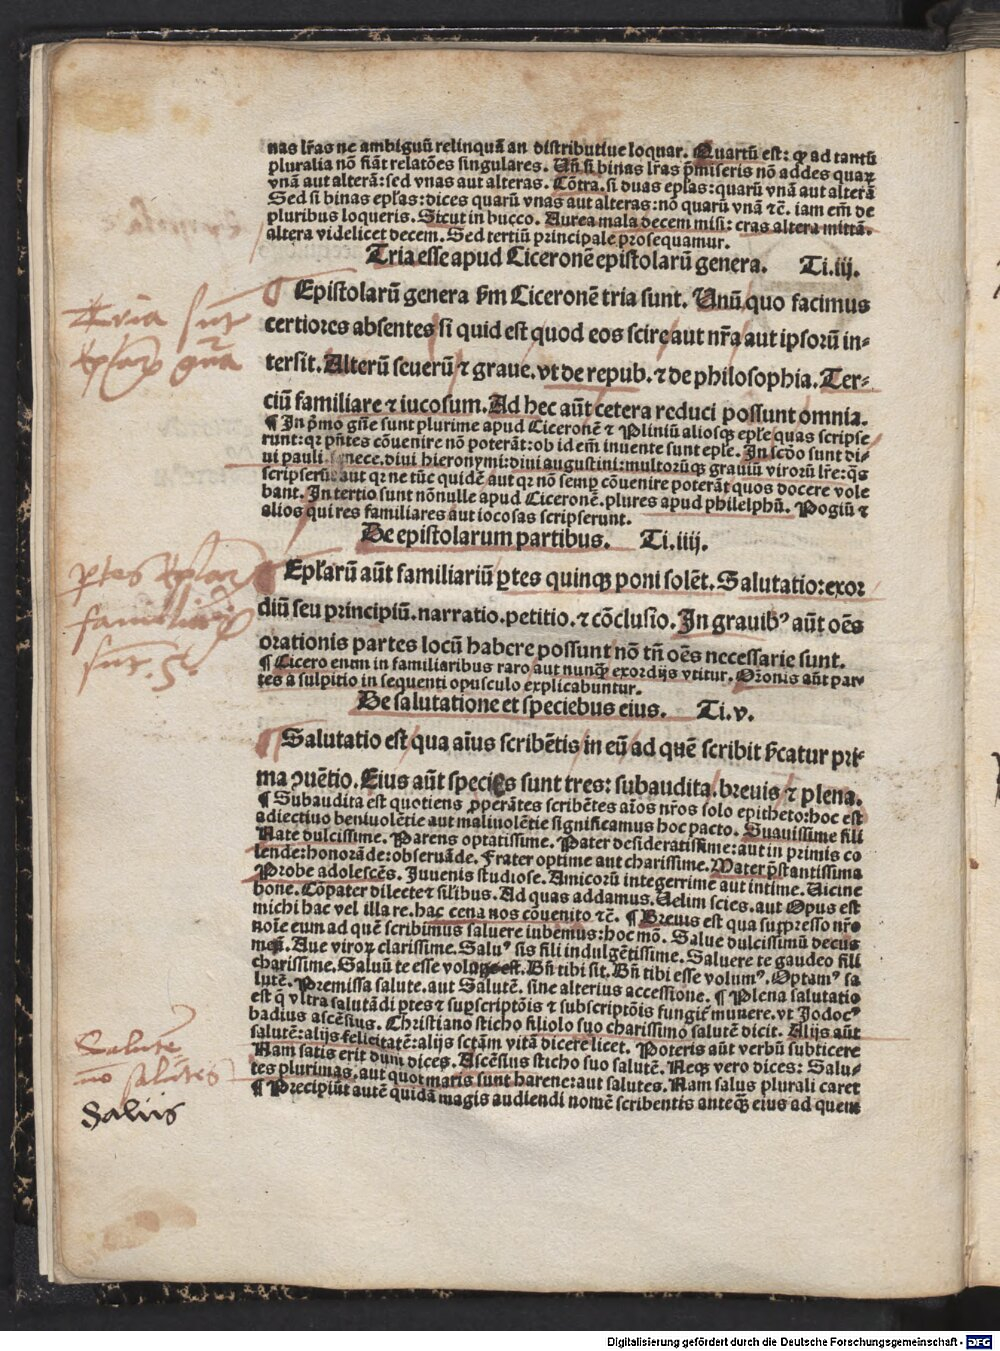 nas lr̃as ne ambiguũ relinquã an distributiue loquar. Quartũ est: ꝙ ad tantũ
pluralia nõ fiãt relatões singulares. Uñ si binas lr̃as p̃miseris nõ addes quaꝝ
vnã aut alterã: sed vnas aut alteras. Cõtra. si duas epl̃as: quarũ vnã aut alterã
Sed si binas epl̃as: dices quarũ vnas aut alteras: nõ quarũ vnã ⁊c̃. iam em̃ de
pluribus loqueris. Sicut in bucco. Aurea mala decem misi: cras altera mittã.
altera videlicet decem. Sed tertiũ principale prosequamur.
Tria esse apud Ciceronẽ epistolarũ genera. Ti.iij.
¶ Epistolarũ genera ẜm Ciceronẽ tria sunt. Unũ quo facimus
certiores absentes si quid est quod eos scire aut nr̃a aut ipsorũ in-
tersit. Alterũ seuerũ ⁊ graue. vt de repub. ⁊ de philosophia. Ter-
ciũ familiare ⁊ iucosum. Ad hec aũt cetera reduci possunt omnia.
¶ In p̃mo gñe sunt plurime apud Ciceronẽ ⁊ Pliniũ aliosqꝫ epl̃e quas scripse
runt: qꝛ p̃ntes cõuenire nõ poterãt: ob id em̃ inuente sunt epl̃e. In scd̃o sunt di-
ui pauli. senece. diui hieronymi: diui augustini: multorũqꝫ grauiũ virorũ lr̃e: q̃s
scripserũt aut qꝛ ne tũc quidẽ aut qꝛ nõ semꝑ cõuenire poterãt quos docere vole
bant. In tertio sunt nõnulle apud Ciceronẽ. plures apud philelphũ. Pogiũ ⁊
alios qui res familiares aut iocosas scripserunt.
De epistolarum partibus. Ti.iiij.
Epl̃arũ aũt familiariũ ꝑtes quinqꝫ poni solẽt. Salutatio: exor
diũ seu principiũ. narratio. petitio. ⁊ cõclusio. In grauibꝰ aũt oẽs
orationis partes locũ habere possunt nõ tñ oẽs necessarie sunt.
¶ Cicero enim in familiaribus raro aut nunqꝫ exordijs vtitur. Or̃onis aũt par-
tes a sulpitio in sequenti opusculo explicabuntur.
De salutatione et speciebus eius. Ti.v.
¶ Salutatio est qua aĩus scribẽtis in eũ ad quẽ scribit p̃catur pri-
ma ꝯuẽtio. Eius aũt species sunt tres: subaudita. breuis ⁊ plena.
¶ Subaudita est quotiens ꝓperãtes scribẽtes aĩos nr̃os solo epitheto: hoc est
adiectiuo beniuolẽtie aut maliuolẽtie significamus hoc pacto. Suauissime fili
Nate dulcissime. Parens optatissime. Pater desideratissime: aut in primis co
lende: honorãde: obseruãde. Frater optime aut charissime. Mater p̃stantissima
Probe adolescẽs. Juuenis studiose. Amicorũ integerrime aut intime. Uicine
bone. Cõpater dilecte ⁊ sil̃ibus. Ad quas addamus. Uelim scies. aut Opus est
michi hac vel illa re. hac cena nos cõuenito ⁊c̃. ¶ Breuis est qua suppresso nr̃o
noĩe eum ad quẽ scribimus saluere iubemus: hoc mõ. Salue dulcissimũ decus
meũ. Aue viroꝝ clarissime. Saluꝰ sis fili indulgẽtissime. Saluere te gaudeo fili
charissime. Saluũ te esse volo. Bñ tibi sit. Bñ tibi esse volumꝰ. Optamꝰ sa
lutẽ. Premissa salute. aut Salutẽ. sine alterius accessione. ¶ Plena salutatio
est q̃ vltra salutãdi ꝑtes ⁊ suꝑscriptõis ⁊ subscriptõis fungit̃ munere. vt Jodocꝰ
badius ascẽsius. Christiano sticho filiolo suo charissimo salutẽ dicit. Alijs aũt
salutẽ: alijs felicitatẽ: alijs sctãm vitã dicere licet. Poteris aũt verbũ subticere
Nam satis erit dum dices. Ascẽsius sticho suo salutẽ. Neqꝫ vero dices: Salu-
tes plurimas. aut quot maris sunt harene: aut salutes. Nam salus plurali caret
¶ Precipiũt autẽ quidã magis audiendi nomẽ scribentis anteqꝫ̃ eius ad quem
Tria sũt
epl̃aꝝ gñа
ꝑtes epl̃aꝝ
familiariũ
sũt .5.
Salutẽ
nõ salutes
Saluꝰ